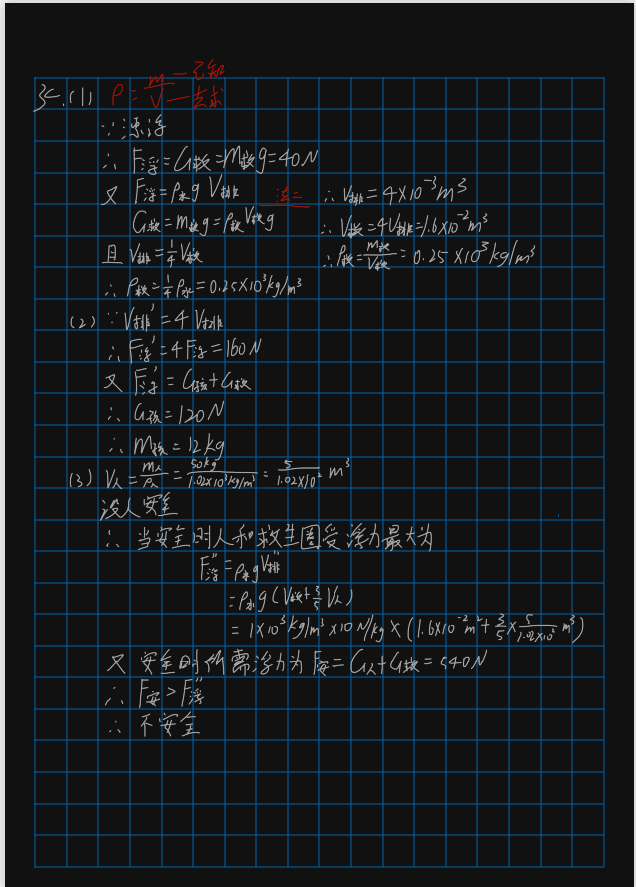 34.(1) ρ=m/V —已知 —去求
∵漂浮
∴ F浮=G救=m救g=40N
又 F浮=ρ水g V排
G救=m救g=ρ救V救g
且 V排=1/4 V救
∴ρ救=1/4ρ水=0.25×10³kg/m³
法二 ∴V排=4×10⁻³m³
∴V救=4V排=1.6×10⁻²m³
∴ρ救=m救/V救=0.25×10³kg/m³
(2) ∵V排'=4V排
∴F浮'=4F浮=160N
又 F浮'=G孩+G救
∴G孩=120N
∴m孩=12kg
(3) V人=m人/ρ人=50kg/1.02×10³kg/m³=5/1.02×10² m³
设人安全
∴当安全时人和救生圈受浮力最大为
F浮''=ρ水gV排''
=ρ水g(V救+3/5V人)
=1×10³kg/m³×10N/kg×(1.6×10⁻²m²+3/5×5/1.02×10² m³)
又安全时所需浮力为F安=G人+G救=540N
∴F安>F浮''
∴不安全